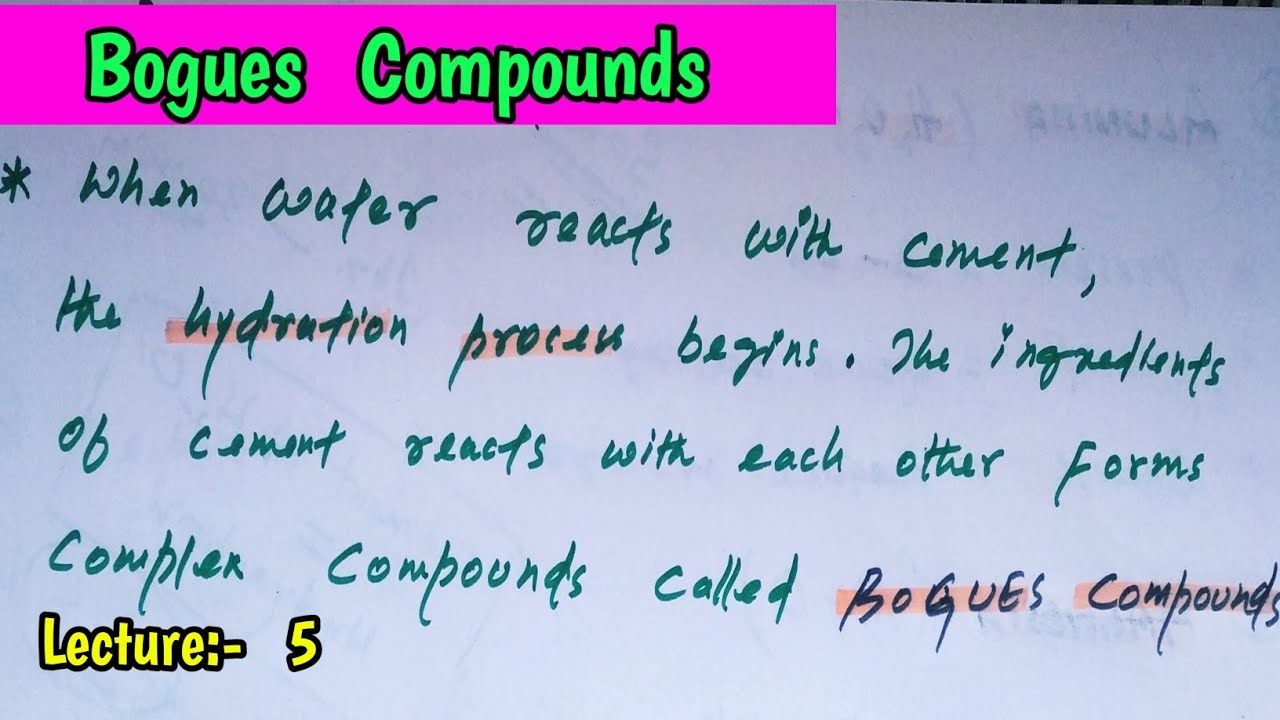 Bogues Compounds
* When water reacts with cement,
the hydration process begins. The ingredients
of cement reacts with each other forms
Complex Compounds called BOGUES Compounds
Lecture:- 5